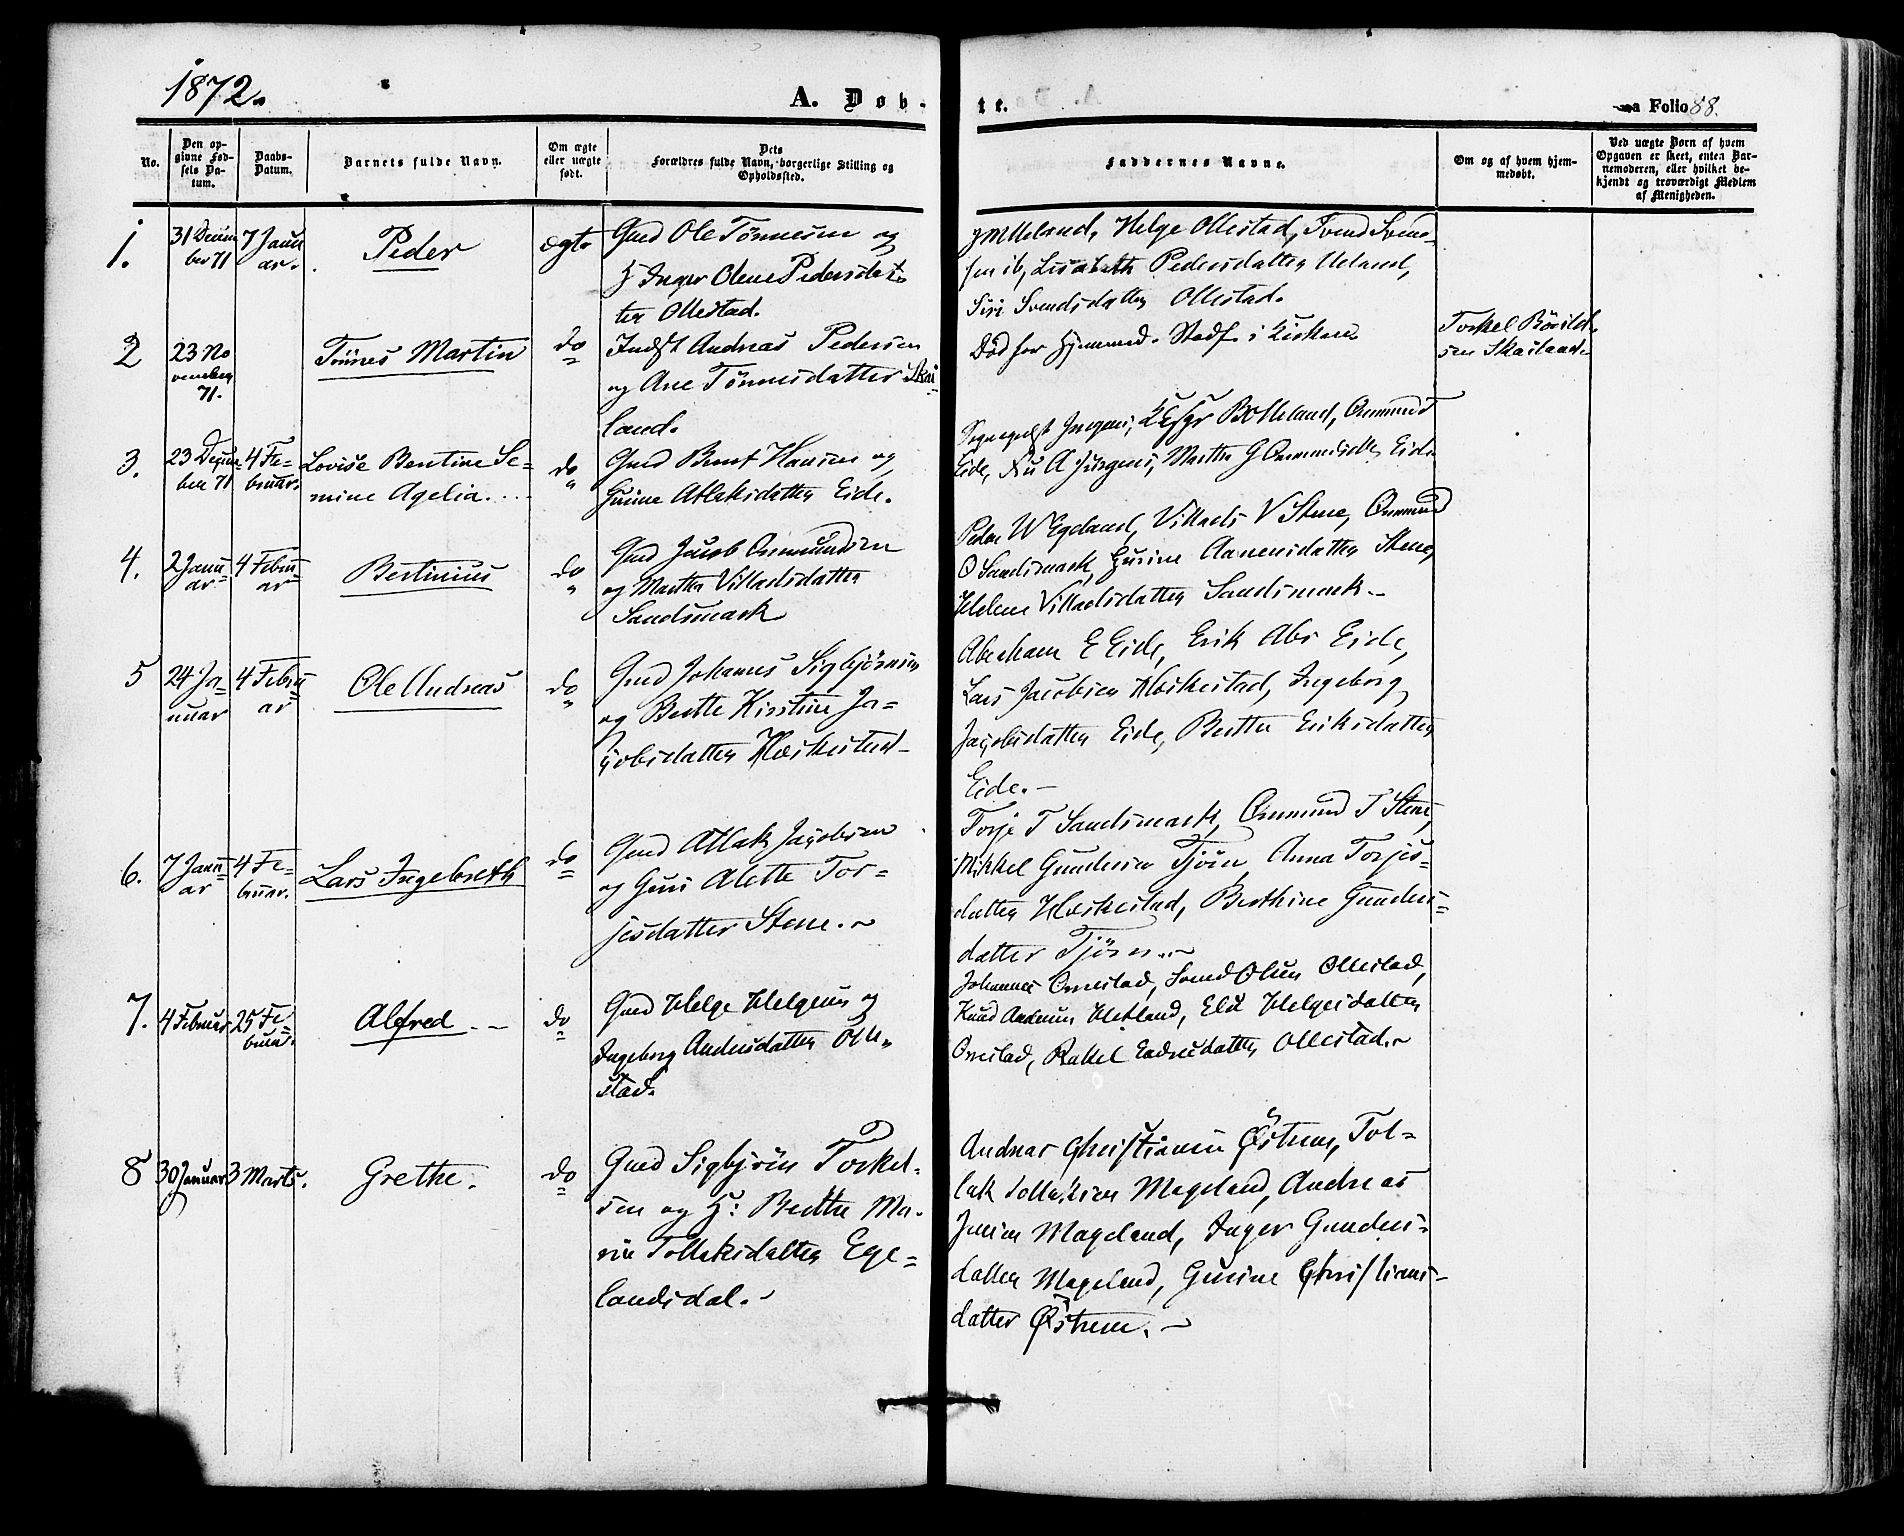 1872.
A. Døb-
te.
Folio 88.
No.
Den op-
givne Fød-
sels Da-
tum.
Daabs-
Datum.
Barnets fulde Navn.
Om ægte
eller uægte
født.
Dets
Forældres fulde Navn, borgerlige Stilling og
Opholdssted.
Faddernes Navne.
Om og af hvem hjem-
medøbt.
Ved uægte Børn af hvem
Opgaven er skeet, enten Bar-
nemoderen, eller hvilket be-
kjendt og troværdigt Medlem
af Menigheden.
1.
31 Decem
ber 71
7 Janu
ar.
Peder
ægte
Gmd Ole Tönnesen og
H Inger Olene Pedersdat-
ter Ollestad.
Ueland, Helge Ollestad, Svend Svend-
sen ib, Lisabeth Pedersdatter Ueland,
Siri Svendsdatter Ollestad.
2
23 No
vember
71.
Tönnes Martin
do
Indst Andreas Pedersen
og Ane Tönnesdatter Skai-
land.
Död før Hjemmed. Stadf. i Kirken
Torkel
Skailand
3.
23 Decem
ber 71
4 Fe-
bruar.
Lovise Bentine Se-
mine Agelia.
do
Gmd Bernt Hansen og
Gurine Atlaksdatter Eide.
Ueland, Ommund
Eide, A Jürgens, Martha G Ommundsdtr Eide
4.
2 Janu
ar
4 Febru
ar
Bertinius
do
Gmd Jacob Ommundsen
og Martha Villadsdatter
Sandsmark
Peder W Egeland, Villads V Stene, Ommund
O Sandsmark, Gurine Aanensdatter Stene,
Helene Villadsdatter Sandsmark.-
5
24 Ja-
nuar
4 Febru
ar
Ole Andreas
do
Gmd Johannes Sigbjörnsen
og Berthe Kirstine Ja-
cobsdatter Heskestad-
Abraham E Eide, Erik Abr Eide,
Lars Jacobsen Heskestad, Ingeborg
Jacobsdatter Eide, Berthe Eriksdatter
Eide.-
6.
7 Janu
ar
4 Fe-
bruar.
Lars Ingebreth
do
Gmd Atlak Jacobsen
og Guri Alette Tor-
jesdatter Stene.~
Torje T Sandsmark, Ommund T Stene,
Mikkel Gundersen Tjörn, Anna Torjes-
datter Heskestad, Berthine Gunders-
datter Tjörn.~
7.
4 Februar
25 Fe
bruar.
Alfred
do
Gmd Helge Helgesen og
Ingeborg Andersdatter Olle-
stad.
Johannes Omestad, Svend Olsen Ollestad,
Knud Andersen Hetland, Eli Helgesdatter
Omestad, Rakel Endresdatter Ollestad.~
8
30 Januar
3 Marts.
Grethe.
do
Gmd Sigbjörn Torkel-
sen og H: Berthe Ma-
rie Tollaksdatter Ege-
landsdal.~
Andreas Christiansen Østrem, Tol-
lak Tollaksen Mageland, Andreas
Jensen Mageland, Inger Gunders-
datter Mageland, Gurine Christians-
datter Østrem.~